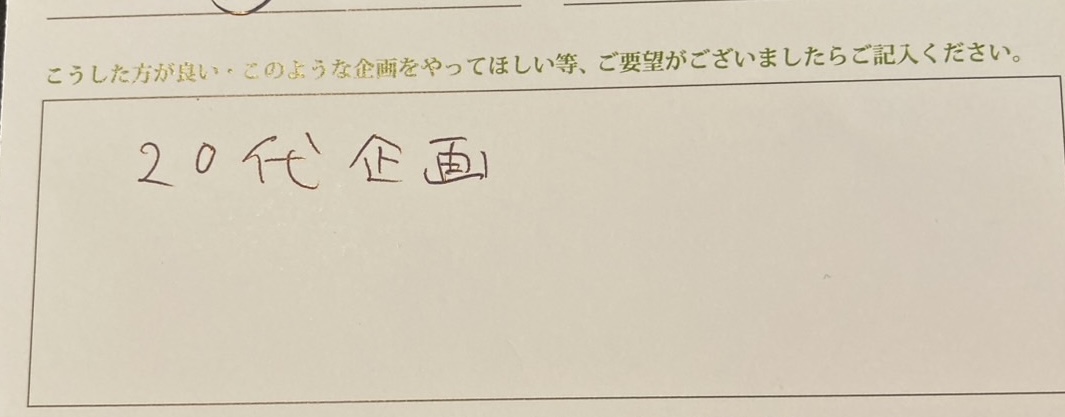 こうした方が良い・このような企画をやってほしい等、ご要望がございましたらご記入ください。
20代企画